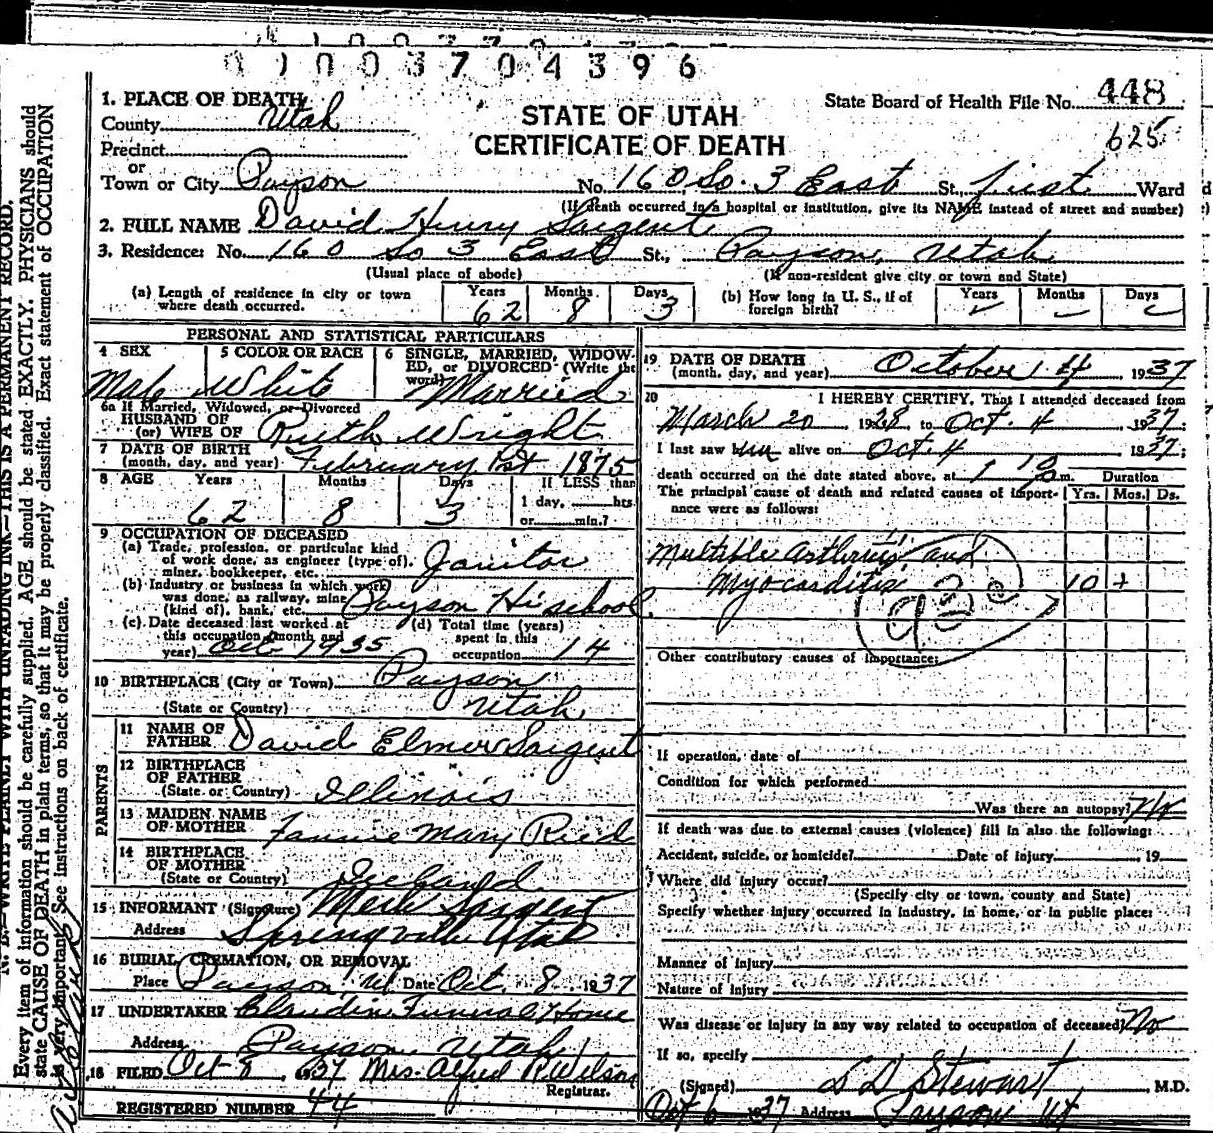 0 1 0 0 3 7 0 4 3 9 6
State Board of Health File No. 448
625
STATE OF UTAH
CERTIFICATE OF DEATH
1. PLACE OF DEATH
County Utah
Precinct
or
Town or City Payson No. 160 So. 3 East St. first Ward
(If death occurred in a hospital or institution, give its NAME instead of street and number)
2. FULL NAME David Henry Sargent
3. Residence: No. 160 So 3 East St., Payson, Utah
(Usual place of abode) (If non-resident give city or town and State)
(a) Length of residence in city or town where death occurred. Years 62 Months 8 Days 3
(b) How long in U. S., if of foreign birth? Years Months Days
PERSONAL AND STATISTICAL PARTICULARS
4 SEX Male
5 COLOR OR RACE White
6 SINGLE, MARRIED, WIDOWED, or DIVORCED (Write the word) Married
6a If Married, Widowed, or Divorced
HUSBAND OF
(or) WIFE OF Ruth Wright
7 DATE OF BIRTH
(month, day, and year) February 1st 1875
8 AGE Years 62 Months 8 Days 3 If LESS than 1 day, hrs. or min.?
9 OCCUPATION OF DECEASED
(a) Trade, profession, or particular kind of work done, as engineer (type of), miner, bookkeeper, etc. Janitor
(b) Industry or business in which work was done, as railway, mine (kind of), bank, etc. Payson Hi school
(c) Date deceased last worked at this occupation (month and year) Oct 1935
(d) Total time (years) spent in this occupation 14
10 BIRTHPLACE (City or Town) Payson
(State or Country) Utah
PARENTS
11 NAME OF FATHER David Elmer Sargent
12 BIRTHPLACE OF FATHER
(State or Country) Illinois
13 MAIDEN NAME OF MOTHER Fannie Mary Reed
14 BIRTHPLACE OF MOTHER
(State or Country)
15 INFORMANT (Signature) Merle Sargent
Address Springville Utah
16 BURIAL, CREMATION, OR REMOVAL
Place Payson Ut Date Oct. 8 1937
17 UNDERTAKER Claudin Funeral Home
Address Payson, Utah
18 FILED Oct 8 1937 Mrs. Alfred R Wilson
Registrar.
REGISTERED NUMBER 44
19 DATE OF DEATH
(month, day, and year) October 4, 1937
20 I HEREBY CERTIFY, That I attended deceased from
March 20 1928 to Oct. 4 1937
I last saw him alive on Oct. 4 1937;
death occurred on the date stated above, at 1 p.m.
The principal cause of death and related causes of importance were as follows:
Duration Yrs. Mos. Ds.
Multiple Arthritis and
Myocarditis 10 +
Other contributory causes of importance:
If operation, date of
Condition for which performed
Was there an autopsy? No
If death was due to external causes (violence) fill in also the following:
Accident, suicide, or homicide? Date of injury , 19
Where did injury occur?
(Specify city or town, county and State)
Specify whether injury occurred in industry, in home, or in public place:
Manner of Injury
Nature of Injury
Was disease or injury in any way related to occupation of deceased? No
If so, specify
(Signed) L D Stewart M.D.
Oct 6 1937 Address Payson Ut
N. B.—WRITE PLAINLY WITH UNFADING INK—THIS IS A PERMANENT RECORD.
Every item of information should be carefully supplied. AGE should be stated EXACTLY. PHYSICIANS should
state CAUSE OF DEATH in plain terms, so that it may be properly classified. Exact statement of OCCUPATION
is very important. See instructions on back of certificate.